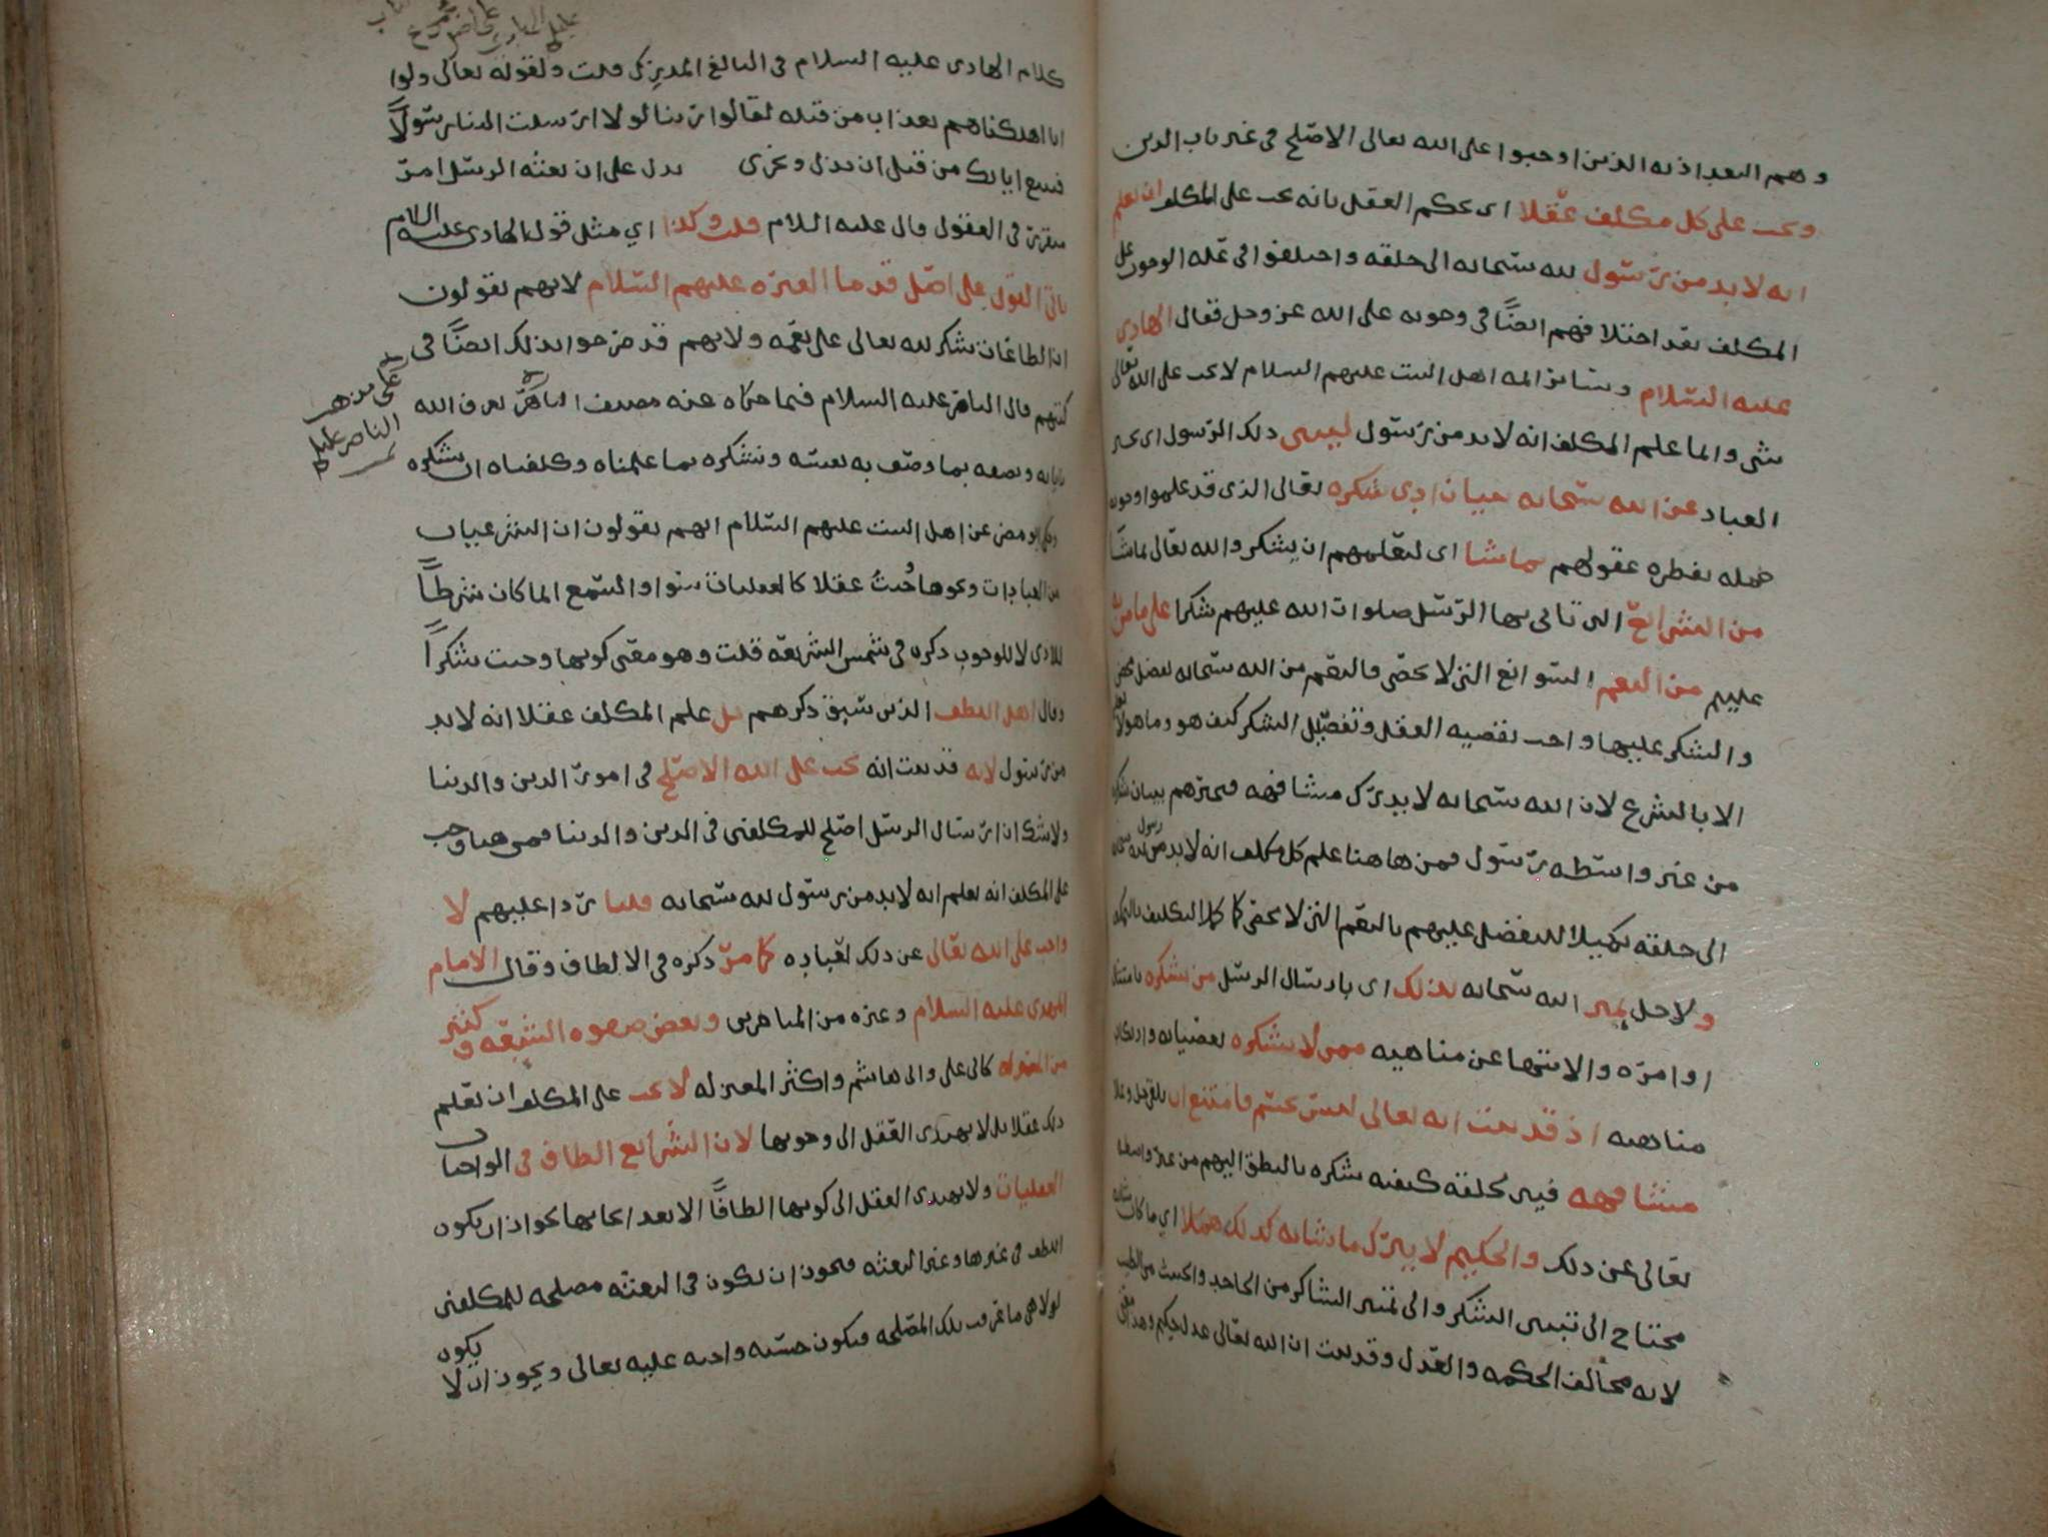 وهم البغداذيه الذين اوجبوا على الله تعالى الاصلح في غير باب الدين
ويجب على كل مكلف عقلا اي بحكم العقل بانه يجب على المكلف ان يعلم
انه لا بد من رسول لله سبحانه الى خلقه واختلفوا في علة الوجوب على
المكلف بعد اختلافهم ايضًا في وجوبه على الله عز وجل فقال الهادي
عليه السلام وسائر ائمه اهل البيت عليهم السلام لا يجب على الله تعالى
شي وانما علم المكلف انه لا بد من رسول لينبي ذلك الرسول اي يخبر
العباد عن الله سبحانه ببيان ادى شكره تعالى الذي قد علموا وجوبه
جمله بفطره عقولهم بما شا اى لتعلمهم ان يشكروا الله تعالى بما شا
من الشرائع التى تاتي بها الرسل صلوات الله عليهم شكرا على ما من
عليهم من النعم السوابغ التي لا تحصى فالنعم من الله سبحانه تفضل محض
والشكر عليها واجب بقضيه العقل وتفصيل الشكر كيف هو وما هو لا
الا بالشرع لان الله سبحانه لا يدرك مشافهه فيخبرهم ببيان شكره
من غير واسطه رسول فمن هاهنا علم كل مكلف انه لا بد من رسول لله سبحانه
الى خلقه تكميلا للتفضل عليهم بالنعم التي لا تحصى كما كمل التكليف
ولاجل يميز الله سبحانه بذلك اى بارسال الرسل من يشكره بامتثال
اوامره والانتها عن مناهيه ممن لا يشكره بعصيانه وارتكاب
مناهيه اذ قد ثبت انه تعالى ليس بجسم فامتنع ان يلقى جل وعلا
مشافهه فيبين لخلقه كيفيه شكره بالنطق اليهم من غير واسطه
تعالى عن ذلك والحكيم لا يترك ما شانه كذلك هملا اي ما كان شانه
محتاج الى تبيين الشكر والى تمييز الشاكر من الجاحد والخبيث من الطيب
لانه مخالف الحكمه والعدل وقد ثبت ان الله تعالى عدل حكيم وهذا معنى
كلام الهادي عليه السلام في البالغ المدرك قلت ولقوله تعالى ولو
انا اهلكناهم بعذاب من قبله لقالوا ربنا لولا ارسلت الينا رسولًا
فنتبع اياتك من قبل ان نذل ونخزى يدل على ان بعثه الرسل امر
متقرر في العقول قال عليه السلام قلت وكذا اي مثل قول الهادي عليه السلام
ياتي القول على اصل قدما العتره عليهم السلام لانهم يقولون
ان الطاعات شكر لله تعالى على نعمه ولانهم قد صرحوا بذلك ايضًا في
كتبهم قال الناصر عليه السلام فيما حكاه عنه مصنف الباهر نعرف الله
باياته ونصفه بما وصف به نفسه ونشكره بما علمناه وكلفناه ان نشكره
على مذهب
الناصر عليلم
وحكى ابو مضر عن اهل البيت عليهم السلام انهم يقولون ان الشرعيات
من العبادات ونحوها وجبت عقلا كالعقليات سوا والسمع انما كان شرطًا
للادى لا للوجوب ذكره في شمس الشريعه قلت وهو معنى كونها وجبت شكرًا
وقال اهل اللطف الذين سبق ذكرهم بل علم المكلف عقلا انه لا بد
من رسول لانه قد ثبت انه يجب على الله الاصلح في امور الدين والدنيا
ولا شك ان ارسال الرسل اصلح للمكلفين في الدين والدنيا فمن هنا وجب
على المكلف انه يعلم انه لا بد من رسول لله سبحانه قلنا ردا عليهم لا
واجب على الله تعالى عن ذلك لعباده كما مر ذكره في الالطاف وقال الامام
المهدي عليه السلام وغيره من المتاخرين وبعض صفوه الشيعه وكثير
من المعتزله كابي علي وابي هاشم واكثر المعتزله لا يجب على المكلف ان يعلم
ذلك عقلا بل لا يهتدى العقل الى وجوبها لان الشرائع الطاف في الواجبات
العقليات ولا يهتدى العقل الى كونها الطافًا الا بعد ايجابها لجواز ان يكون
اللطف في غيرها وغير البعثه فيجوز ان يكون في البعثه مصلحه للمكلفين
لولا هي ما عرفت تلك المصلحه فيكون حسنه واجبه عليه تعالى ويجوز ان لا يكون